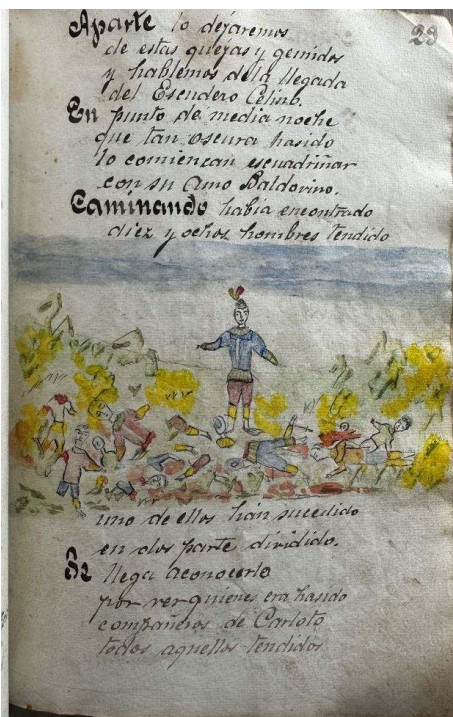 23
Aparte lo dejaremos
de estas quejas y gemidos
y hablemos dela llegada
del Escudero Celino.
En punto de media noche
que tan oscura hasido
lo comienzan escuadriñar
con su Amo Baldovino.
Caminando había encontrado
diez y ochos hombres tendido
uno de ellos hán sucedido
en dos parte dividido.
Se llega aconocerlo
por ver quienes era hasido
compañeros de Carloto
todos aquellos tendidos